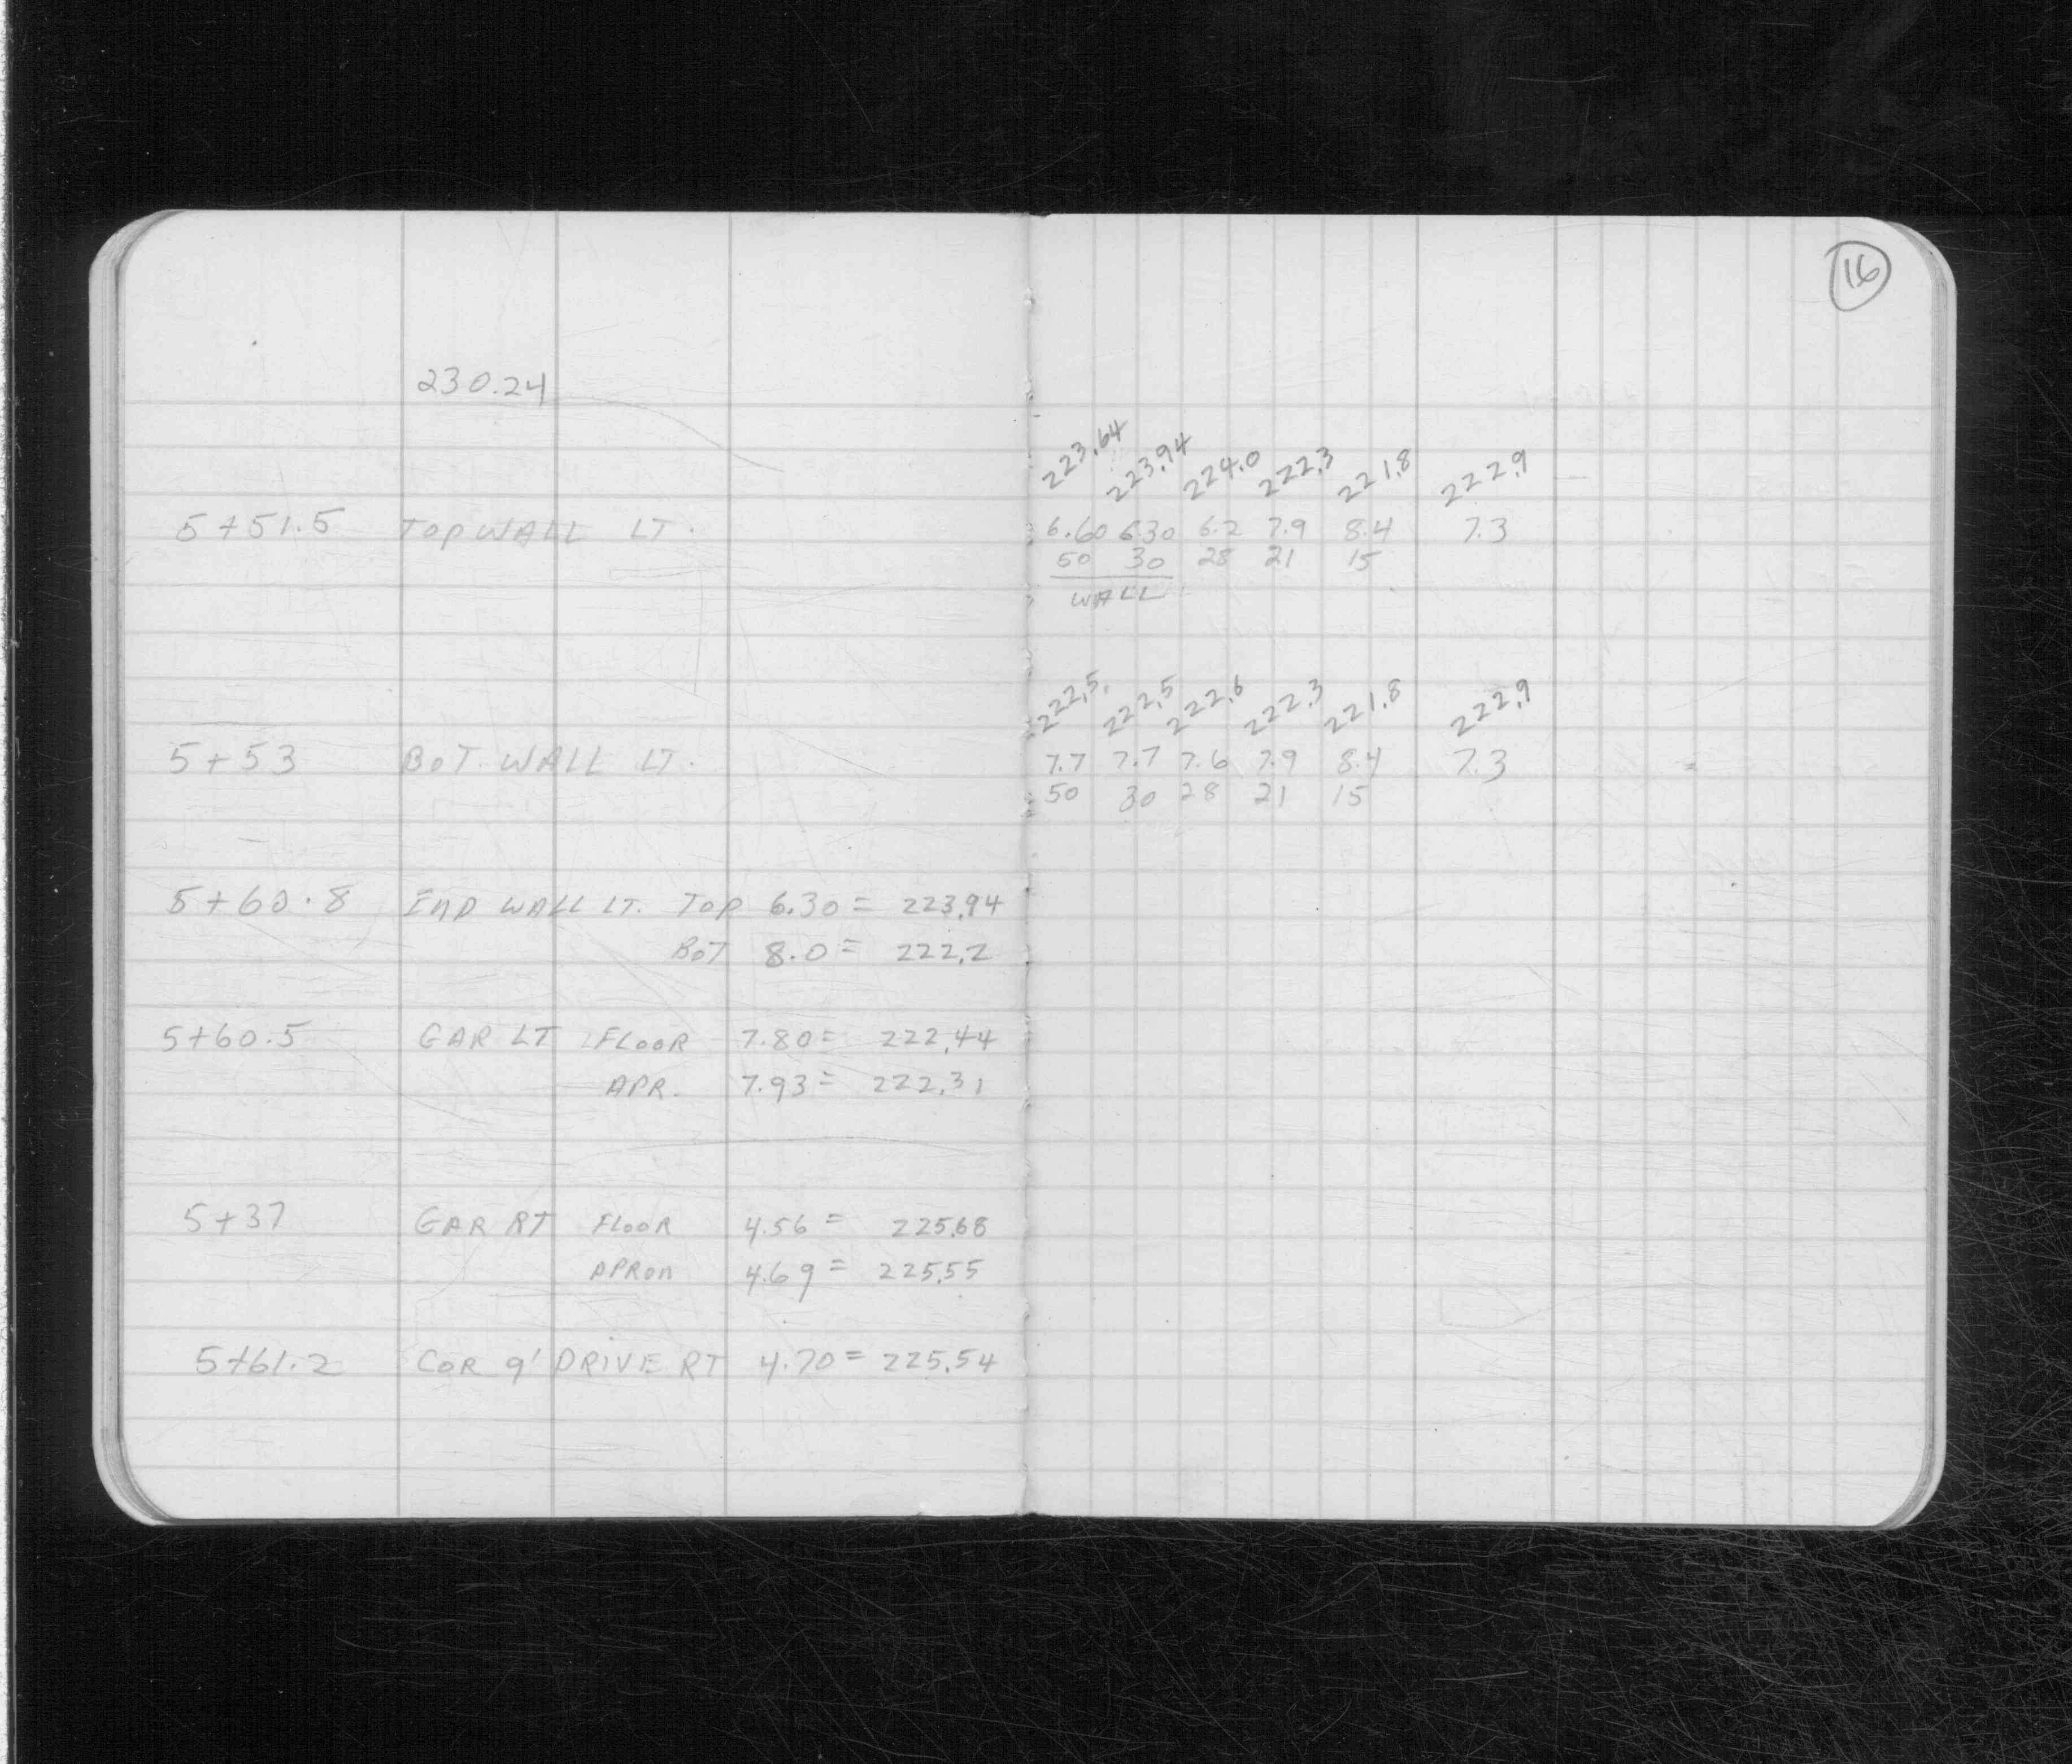 16
230.24
223.64 223.94 224.0 222.3 221.8 222.9
5+51.5 TOP WALL LT. 6.60 6.30 6.2 7.9 8.4 7.3
50 30 28 21 15
WALL
222.5 222.5 222.6 222.3 221.8 222.9
5+53 BOT. WALL LT. 7.7 7.7 7.6 7.9 8.4 7.3
50 30 28 21 15
5+60.8 END WALL LT. TOP 6.30 = 223.94
BOT 8.0 = 222.2
5+60.5 GAR LT FLOOR 7.80 = 222.44
APR. 7.93 = 222.31
5+37 GAR RT FLOOR 4.56 = 225.68
APRON 4.69 = 225.55
5+61.2 COR 9' DRIVE RT 4.70 = 225.54